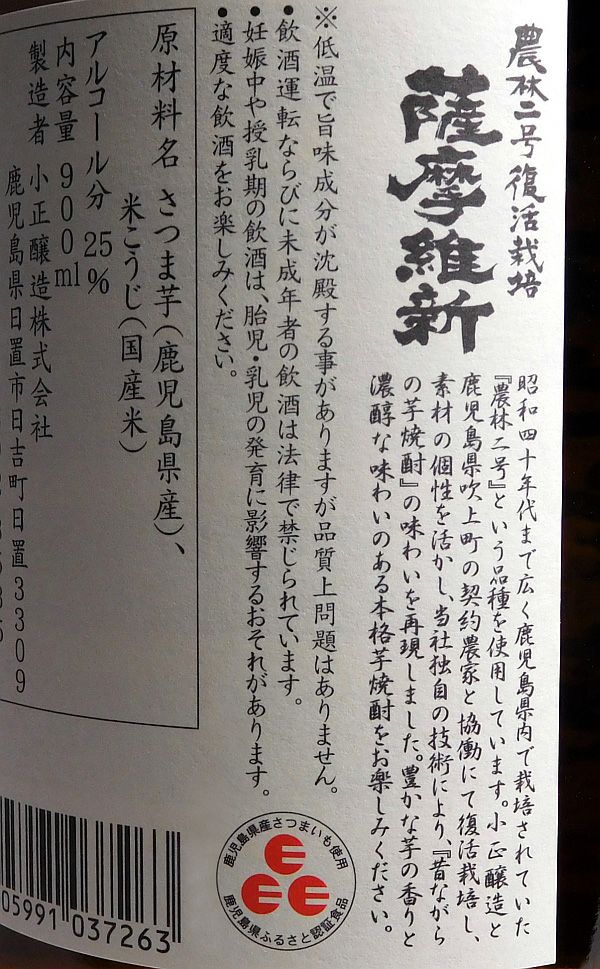 農林二号復活栽培
薩摩維新
昭和四十年代まで広く鹿児島県内で栽培されていた
『農林二号』という品種を使用しています。小正醸造と
鹿児島県吹上町の契約農家と協働にて復活栽培し、
素材の個性を活かし、当社独自の技術により、『昔ながら
の芋焼酎』の味わいを再現しました。豊かな芋の香りと
濃醇な味わいのある本格芋焼酎をお楽しみください。
※低温で旨味成分が沈殿する事がありますが品質上問題はありません。
●飲酒運転ならびに未成年者の飲酒は法律で禁じられています。
●妊娠中や授乳期の飲酒は、胎児・乳児の発育に影響するおそれがあります。
●適度な飲酒をお楽しみください。
原材料名 さつま芋(鹿児島県産)、
米こうじ(国産米)
アルコール分 25%
内容量 900ml
製造者 小正醸造株式会社
鹿児島県日置市日吉町日置3309
鹿児島県産さつまいも使用
鹿児島県ふるさと認証食品
05991 037263